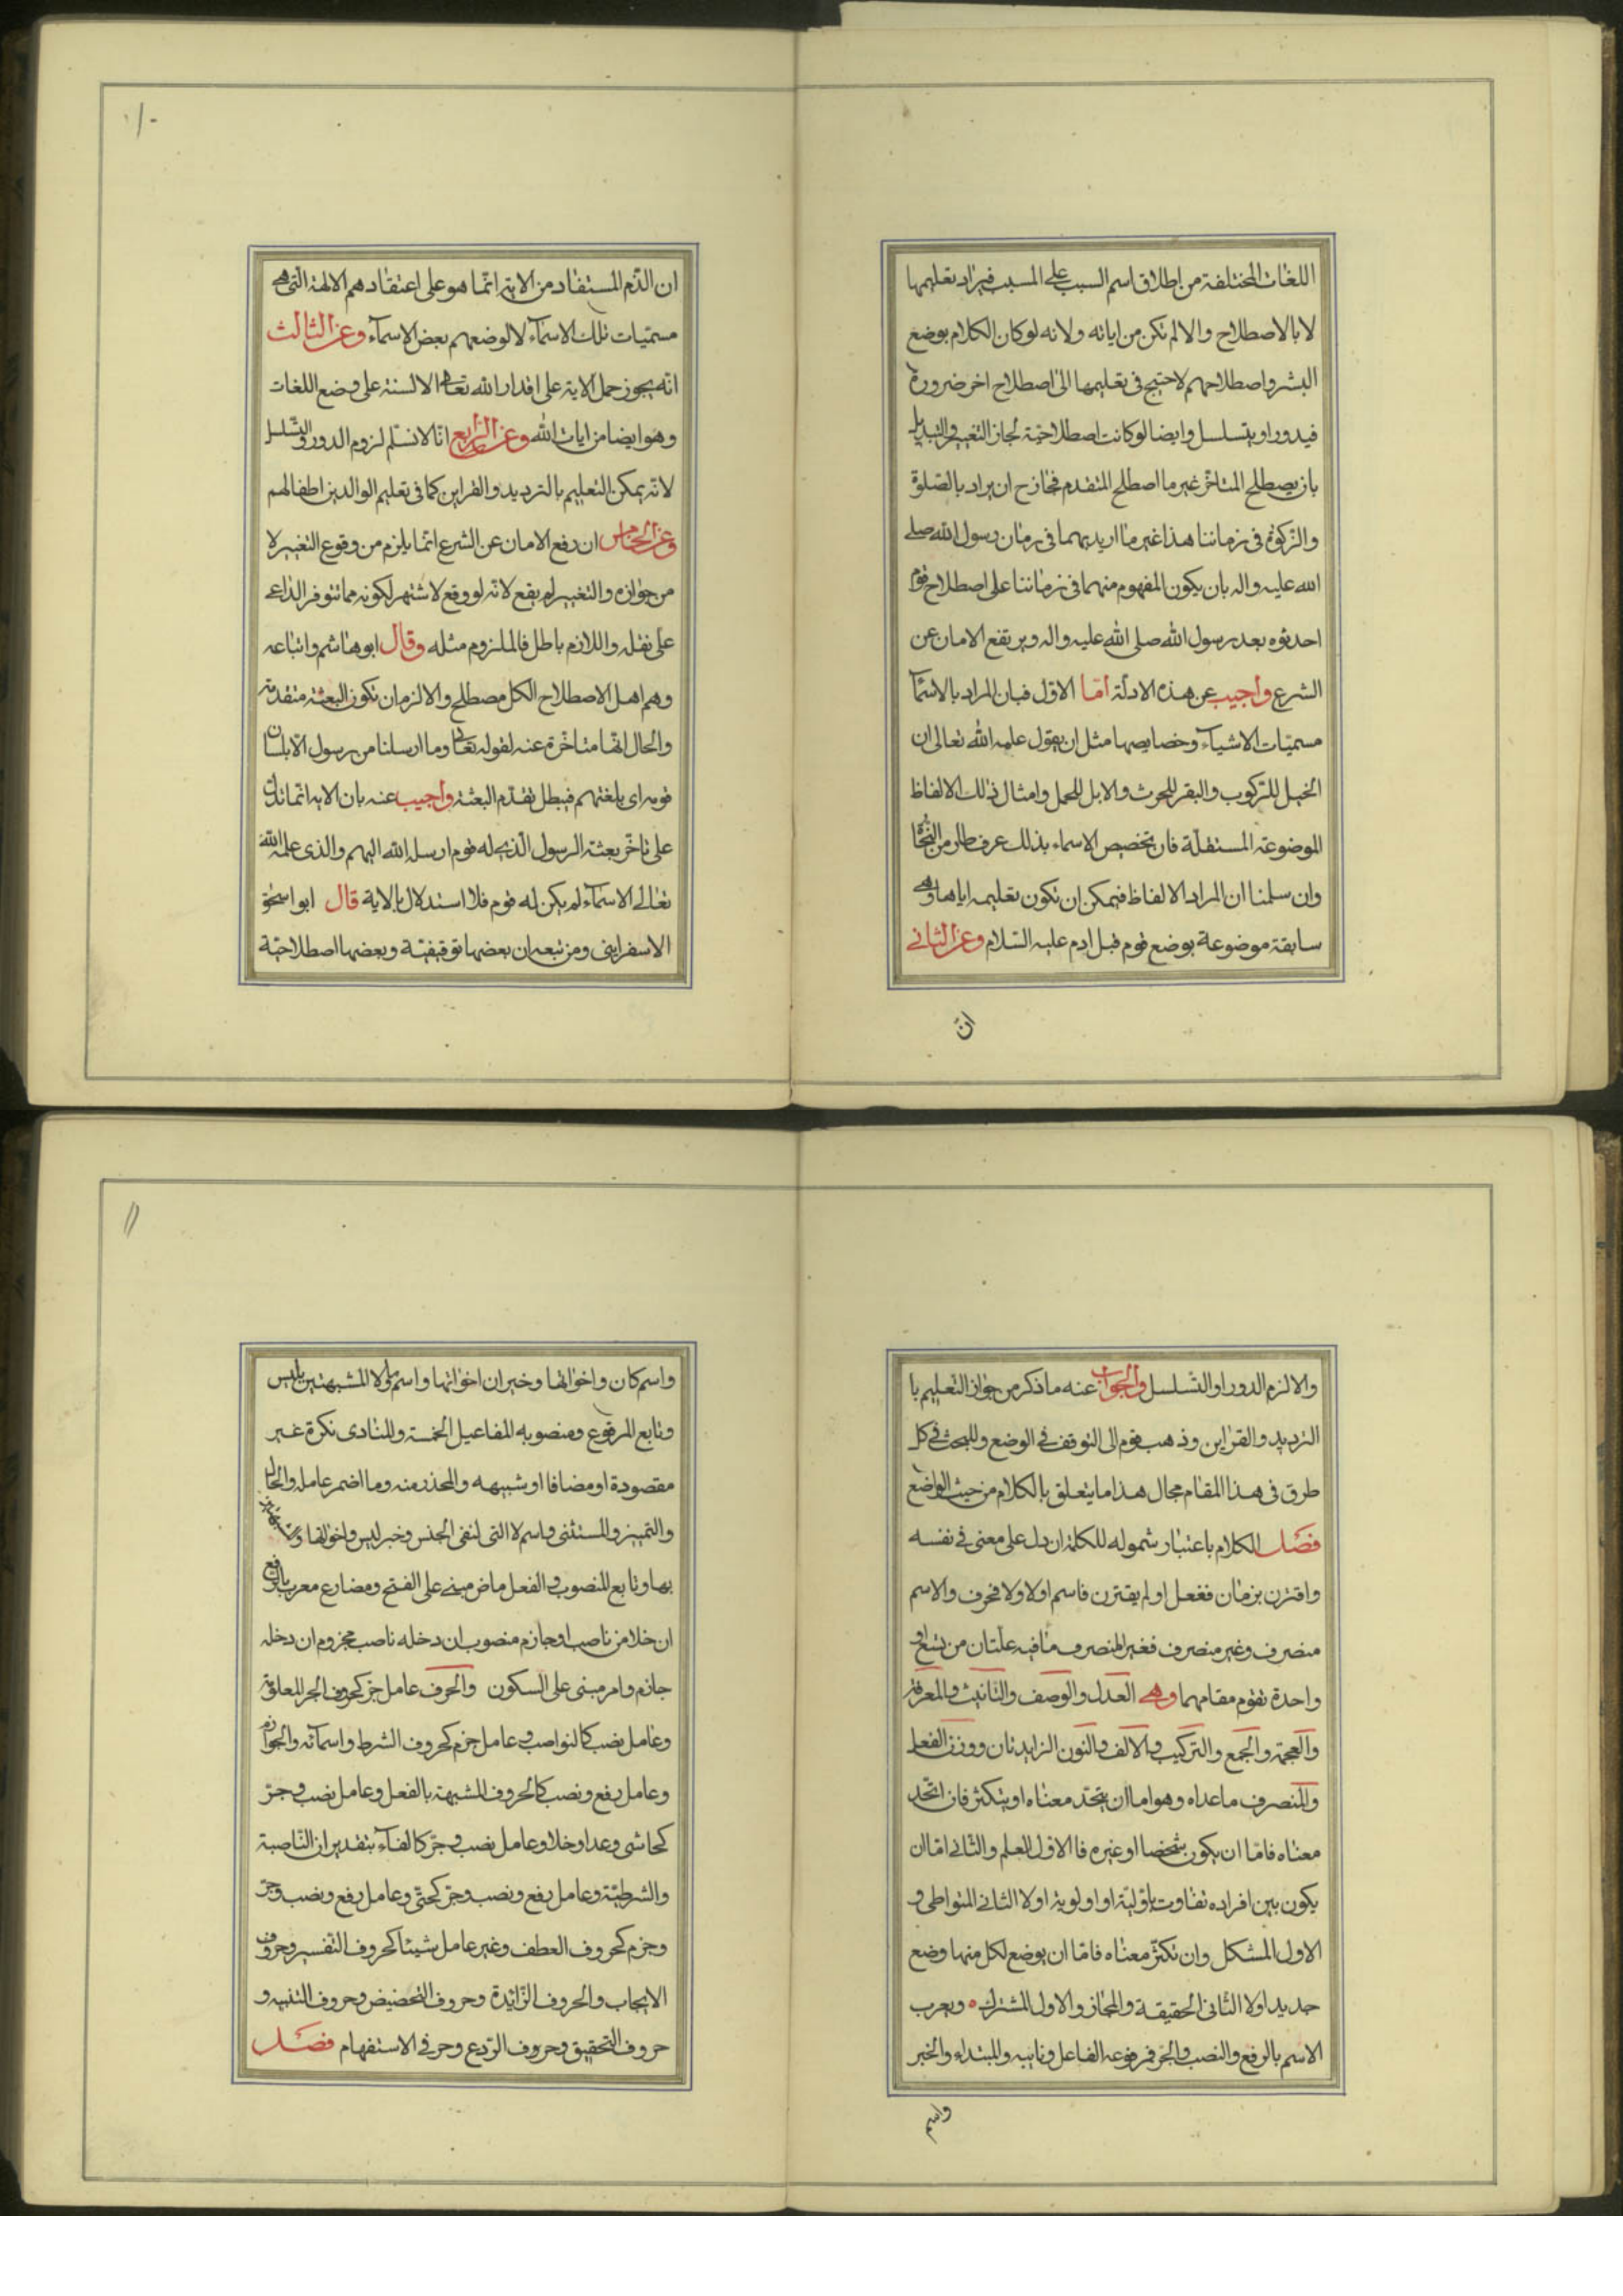 اللغات المختلفة من اطلاق اسم السبب على المسبب فيراد تعليمها
لا بالاصطلاح والا لم تكن من اياته ولانه لو كان الكلام بوضع
البشر واصطلاحهم لاحتيج فى تعليمها الى اصطلاح اخر ضرورة
فيدور او يتسلسل وايضا لو كانت اصطلاحيّة لجاز التغيير والتبديل
بان يصطلح المتاخّر غير ما اصطلح المتقدم فجاز ح ان يراد بالصّلوة
والزّكوة فى زماننا هذا غير ما اريد بهما فى زمان رسول الله صلى
الله عليه واله بان يكون المفهوم منهما فى زماننا على اصطلاح قوم
احدثوه بعد رسول الله صلى الله عليه واله ويرتفع الامان عن
الشرع واجيب عن هذه الادلّة امّا الاوّل فبان المراد بالاسمآء
مسمّيات الاشيآء وخصايصها مثل ان يقول علمه الله تعالى ان
الخيل للرّكوب والبقر للحرث والابل للحمل وامثال ذلك الالفاظ
الموضوعة المستقلّة فان تخصيص الاسماء بذلك عرف طار من النّحاة
وان سلمنا ان المراد الالفاظ فيمكن ان تكون تعليمه اياها وهى
سابقة موضوعة بوضع قوم قبل ادم عليه السّلام وعن الثانى
انّ
١٠
ان الذّم المستفاد من الاية انّما هو على اعتقادهم الالهة الّتى هى
مسمّيات تلك الاسمآء لا لوضعهم بعض الاسمآء وعن الثالث
انّه يجوز حمل الاية على اقدار الله تعالى الالسنة على وضع اللغات
وهو ايضا من ايات الله وعن الرّابع انّا لا نسلّم لزوم الدور والتّسلسل
لانّه يمكن التعليم بالترديد والقراين كما فى تعليم الوالدين اطفالهم
وعن الخامس ان رفع الامان عن الشرع انّما يلزم من وقوع التغيير لا
من جوازه والتغيير لم يقع لانّه لو وقع لاشتهر لكونه مما تتوفر الدّاعى
على نقله واللازم باطل فالملزوم مثله وقال ابوهاشم واتباعه
وهم اهل الاصطلاح الكل مصطلح والا لزم ان تكون البعثة متقدمة
والحال انّها متاخّرة عنه لقوله تعالى وما ارسلنا من رسول الّا بلسان
قومه اى بلغتهم فيبطل تقدّم البعثة واجيب عنه بان الاية انّما تدل
على تاخّر بعثة الرسول الّذى له قوم ارسله الله اليهم والذى علمه الله
تعالى الاسمآء لم يكن له قوم فلا استدلال بالاية قال ابو اسحق
الاسفراينى ومن تبعه ان بعضها توقيفيّة وبعضها اصطلاحيّة
والا لزم الدور او التّسلسل والجواب عنه ما ذكر من جواز التعليم با
الترديد والقراين وذهب قوم الى التوقف فى الوضع وللبحث فى كل
طرق فى هذا المقام مجال هذا ما يتعلق بالكلام من حيث الواضع
فصل الكلام باعتبار شموله للكلمة ان دل على معنى فى نفسه
واقترن بزمان ففعل او لم يقترن فاسم اولا ولا فحرف والاسم
منصرف وغير منصرف فغير المنصرف ما فيه علّتان من تسع او
واحدة تقوم مقامهما وهى العدل والوصف والتانيث والمعرفة
والعجمة والجمع والتركيب والالف والنون الزايدتان ووزن الفعل
والمنصرف ما عداه وهو اما ان يتحدّ معناه او يتكثر فان اتّحد
معناه فامّا ان يكون شخصا او غيره فالاوّل العلم والثّانى امّا ان
يكون بين افراده تفاوت باوّليّة او اولوية اولا الثانى المتواطى و
الاول المشكل وان تكثّر معناه فامّا ان يوضع لكل منها وضع
جديد اولا الثانى الحقيقة والمجاز والاول المشترك ويعرب
الاسم بالرفع والنصب والجر فمرفوعه الفاعل ونايبه والمبتداء والخبر
واسم
١١
واسم كان واخواتها وخبر ان اخواتها واسم ما ولا المشبهتين بليس
وتابع المرفوع ومنصوبه المفاعيل الخمسة والمنادى نكرة غير
مقصودة او مضافا او شبيهه والمحذر منه وما اضمر عامله والحال
والتميز والمستثنى واسم لا التى لنفى الجنس وخبر ليس واخواتها
بها وتابع المنصوب والفعل ماض مبنى على الفتح ومضارع معرب بالرفع
ان خلا من ناصب او جازم منصوب ان دخله ناصب مجزوم ان دخله
جازم وامر مبنى على السكون والحرف عامل جرّ كحروف الجر المعلقة
وعامل نصب كالنواصب وعامل جزم كحروف الشرط واسمائه والجوازم
وعامل رفع ونصب كالحروف المشبهة بالفعل وعامل نصب وجرّ
كحاشى وعدا وخلا وعامل نصب وجرّ كالفآء بتقدير ان النّاصبة
والشرطيّة وعامل رفع ونصب وجرّ كحتّى وعامل رفع ونصب وجرّ
وجزم كحروف العطف وغير عامل شيئا كحروف التفسير وحروف
الايجاب والحروف الزّايدة وحروف التحضيض وحروف التنبيه و
حروف التحقيق وحروف الرّدع وحرفى الاستفهام فصل